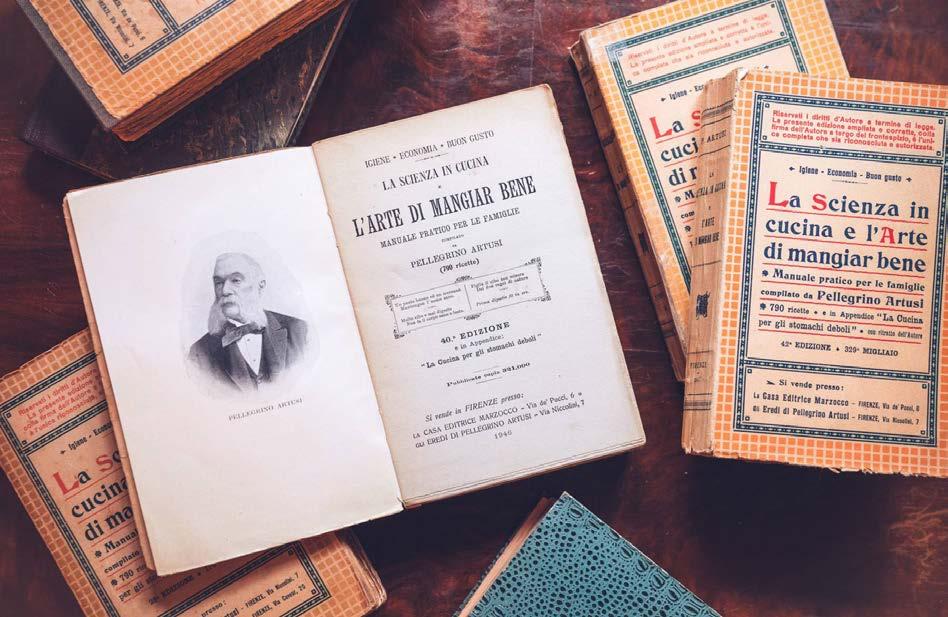 FIRENZE, Via de'
Via Niccolini, 7
PELLEGRINO ARTUSI
IGIENE - ECONOMIA - BUON GUSTO
LA SCIENZA IN CUCINA
E
L'ARTE DI MANGIAR BENE
MANUALE PRATICO PER LE FAMIGLIE
COMPILATO
DA
PELLEGRINO ARTUSI
(790 ricette)
40.ª EDIZIONE
e in Appendice:
"La Cucina per gli stomachi deboli"
Pubblicate copie 321,000
Si vende in FIRENZE presso:
LA CASA EDITRICE MARZOCCO - Via de' Pucci, 6 e
GLI EREDI DI PELLEGRINO ARTUSI - Via Niccolini, 7
1946
Riservati i diritti d'Autore a termine di legge.
La presente edizione ampliata e corretta
ca completa che sia riconosciuta e autorizzata.
Igiene - Eco
La S
cuci
di m
Man
compilato
790
per gli
Riservati i diritti d'Autore a termine di legge.
La presente edizione ampliata e corretta, colla
firma dell'Autore a tergo del frontespizio, è l'uni-
ca completa che sia riconosciuta e autorizzata.
Igiene - Economia - Buon gusto
La Scienza in
cucina e l'Arte
di mangiar bene
Manuale pratico per le famiglie
compilato da Pellegrino Artusi
790 ricette e in Appendice "La Cucina
per gli stomachi deboli" con ritratto dell'Autore
42ª EDIZIONE 329º MIGLIAIO
Si vende presso:
La Casa Editrice Marzocco - FIRENZE, Via de' Pucci, 6
Gli Eredi di Pellegrino Artusi - FIRENZE, Via Niccolini, 7
P. ARTUSI
LA SCIENZA IN CUCINA
E L'ARTE
DI MANGIAR BENE
Riservati i diritti
La presente edizione
colla firma dell'Autore
è l'unica
riconosciuta
Igiene - Econom
La S
cucina
di ma
Manuale
compilato
790
per gli stomachi
EDIZIONE
Si vende presso:
Artusi - FIRENZE, Via Niccolini,
FIRENZE, Via Cavour, 20